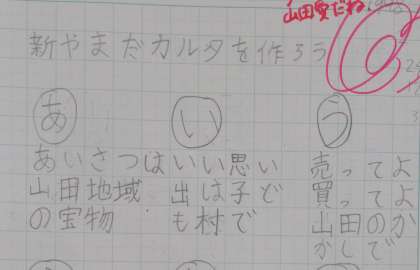 山田愛だね
新やまだカルタを作ろう
あ
い
う
あいさつは
山田地域
の宝物
いい思い
出は子ど
も村で
売ってよ
買ってよ
山田のか
かしで